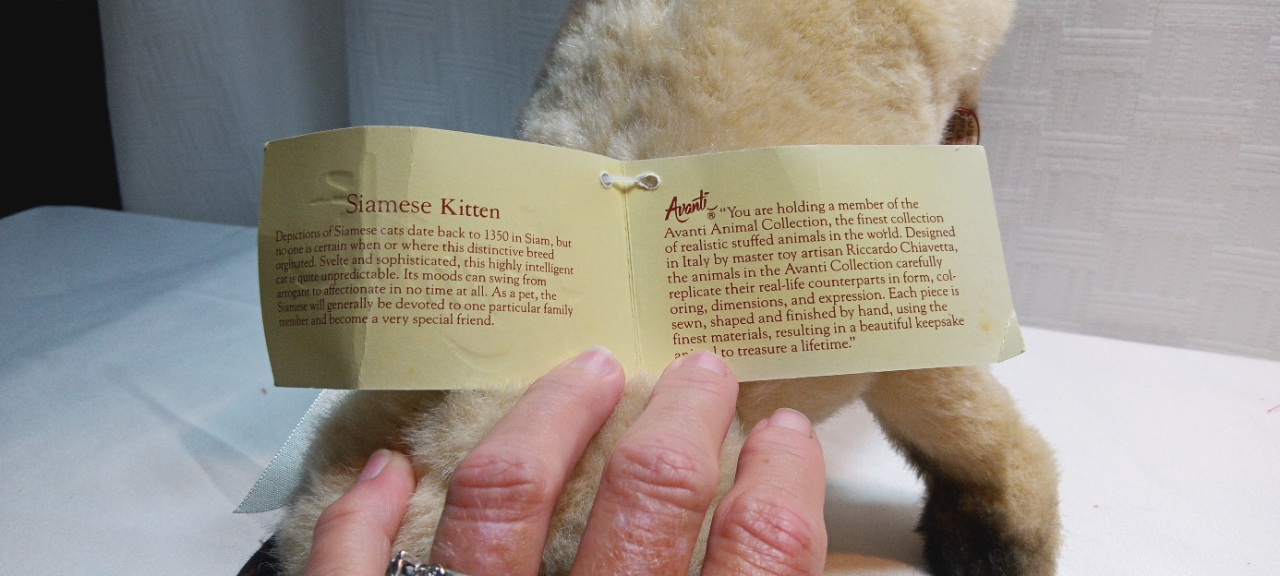 Siamese Kitten
Depictions of Siamese cats date back to 1350 in Siam, but
no one is certain when or where this distinctive breed
orginated. Svelte and sophisticated, this highly intelligent
cat is quite unpredictable. Its moods can swing from
arrogant to affectionate in no time at all. As a pet, the
Siamese will generally be devoted to one particular family
member and become a very special friend.
Avanti® "You are holding a member of the
Avanti Animal Collection, the finest collection
of realistic stuffed animals in the world. Designed
in Italy by master toy artisan Riccardo Chiavetta,
the animals in the Avanti Collection carefully
replicate their real-life counterparts in form, col-
oring, dimensions, and expression. Each piece is
sewn, shaped and finished by hand, using the
finest materials, resulting in a beautiful keepsake
to treasure a lifetime."